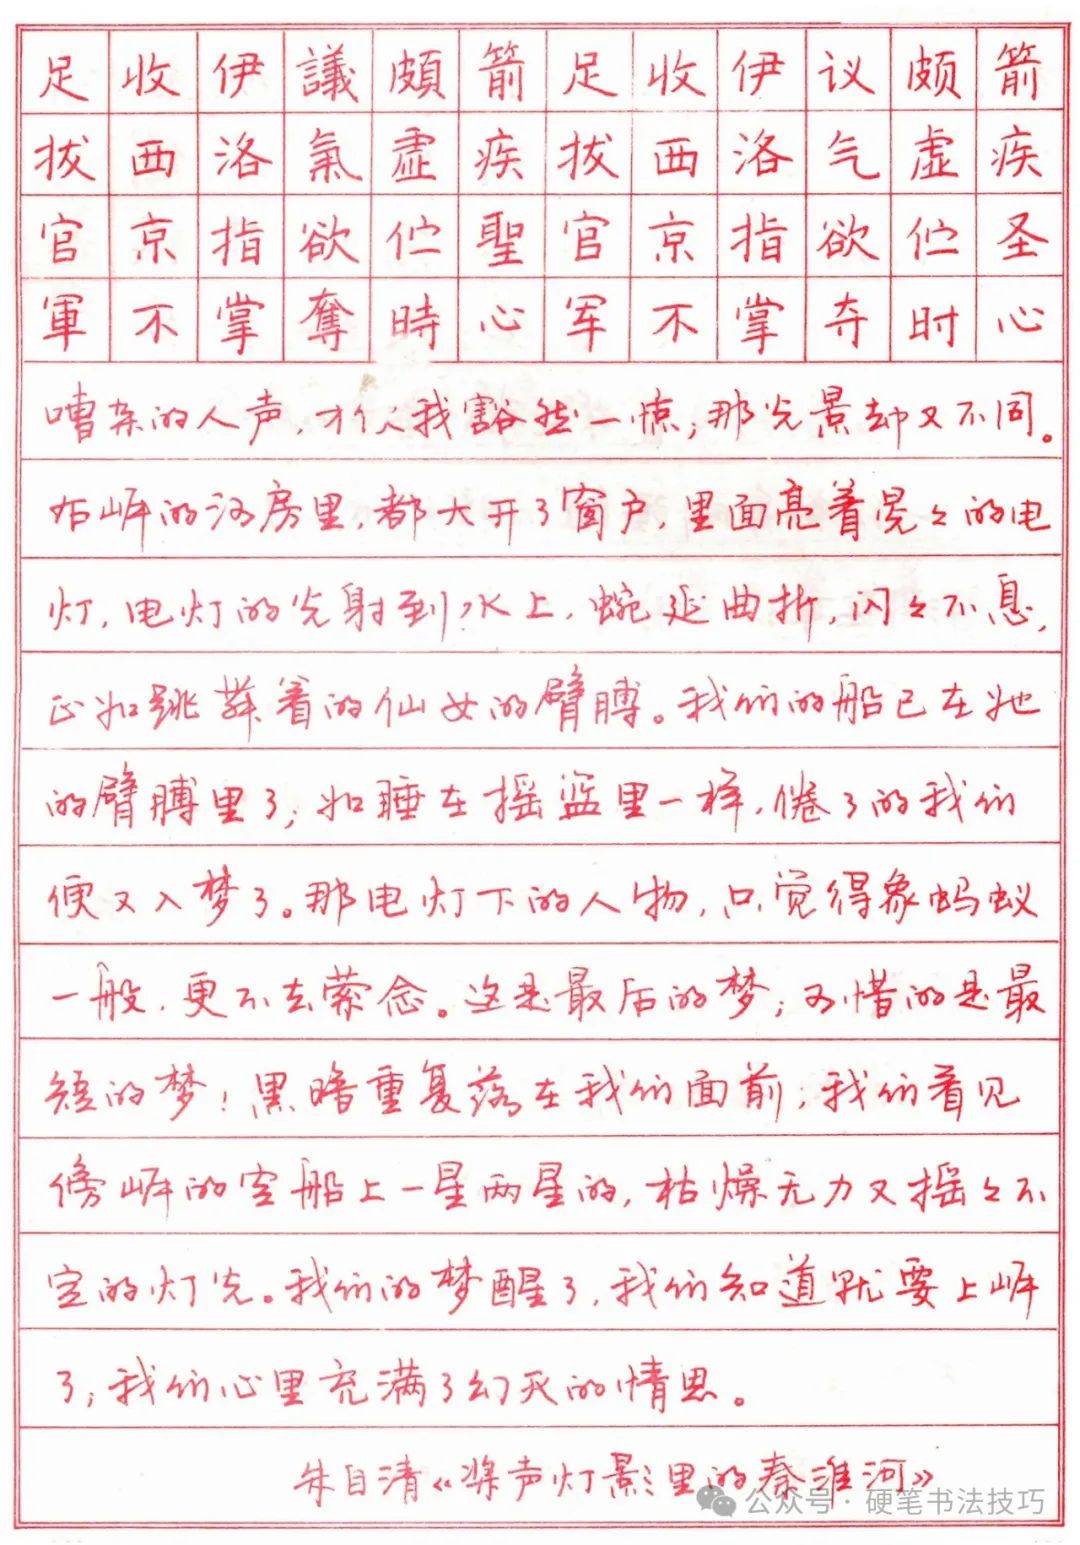 足收伊議頗箭足收伊议颇箭
拔西洛氣虛疾拔西洛气虚疾
官京指欲伫聖官京指欲伫圣
軍不掌奪時心军不掌夺时心
嘈杂的人声,才使我豁然一惊;那光景却又不同。
右岸的河房里,都大开了窗户,里面亮着晃々的电
灯,电灯的光射到水上,蜿蜒曲折,闪々不息,
正如跳舞着的仙女的臂膊。我们的船已在她
的臂膊里了;如睡在摇篮里一样,倦了的我们
便又入梦了。那电灯下的人物,只觉得象蚂蚁
一般,更不去萦念。这是最后的梦;可惜的是最
短的梦!黑暗重复落在我们面前,我们看见
傍岸的空船上一星两星的,枯燥无力又摇々不
定的灯光。我们的梦醒了,我们知道就要上岸
了;我们心里充满了幻灭的情思。
朱自清《桨声灯影里的秦淮河》
公众号·硬笔书法技巧